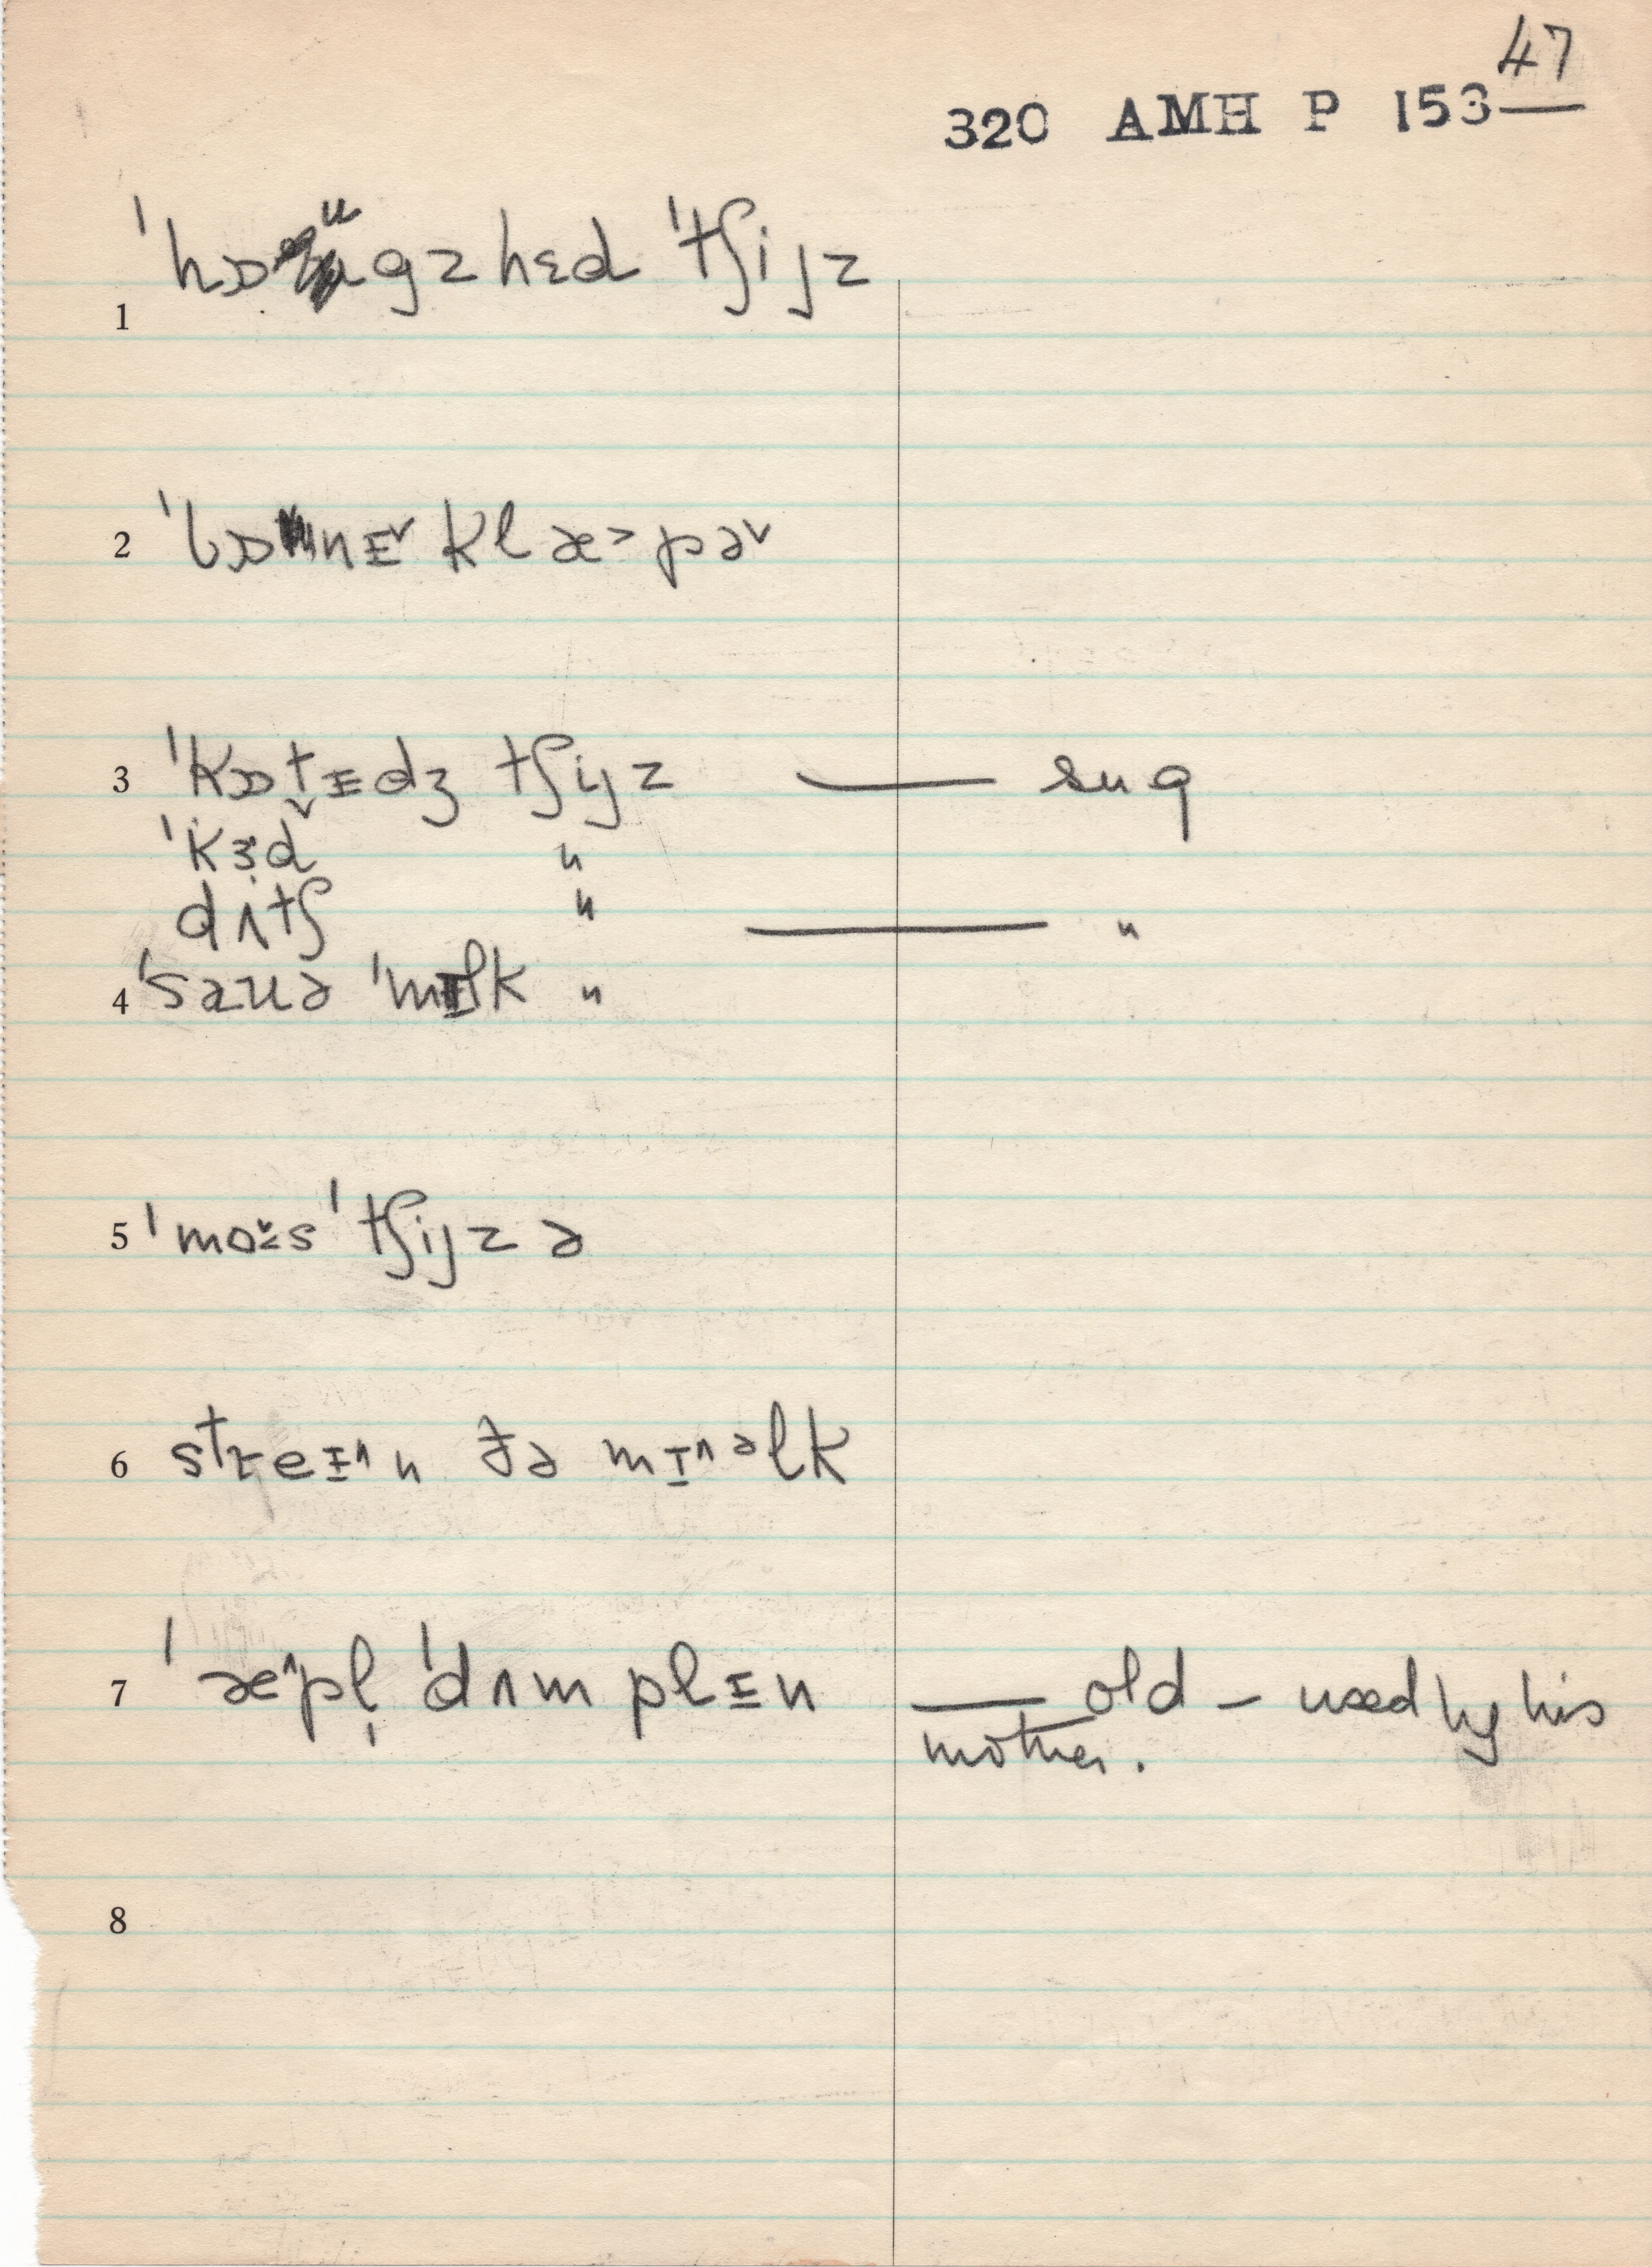 47
320 AMH P 153
ˈhɒᵘgzhɛd ˈtʃijz
1
2 ˈbɒnɪ˅ klæ˃pə˅
3 ˈkɒt̬ɪdʒ tʃijz — sug
ˈkɜd "
dʌtʃ " — "
4 ˈsauə ˈmɪlk "
5 ˈmoɪ̌s ˈtʃijz ə
6 streɪ^n ðə mɪ^əlk
7 ˈæ^pl̩ ˈdʌmplɪn — old – used by his
mother.
8